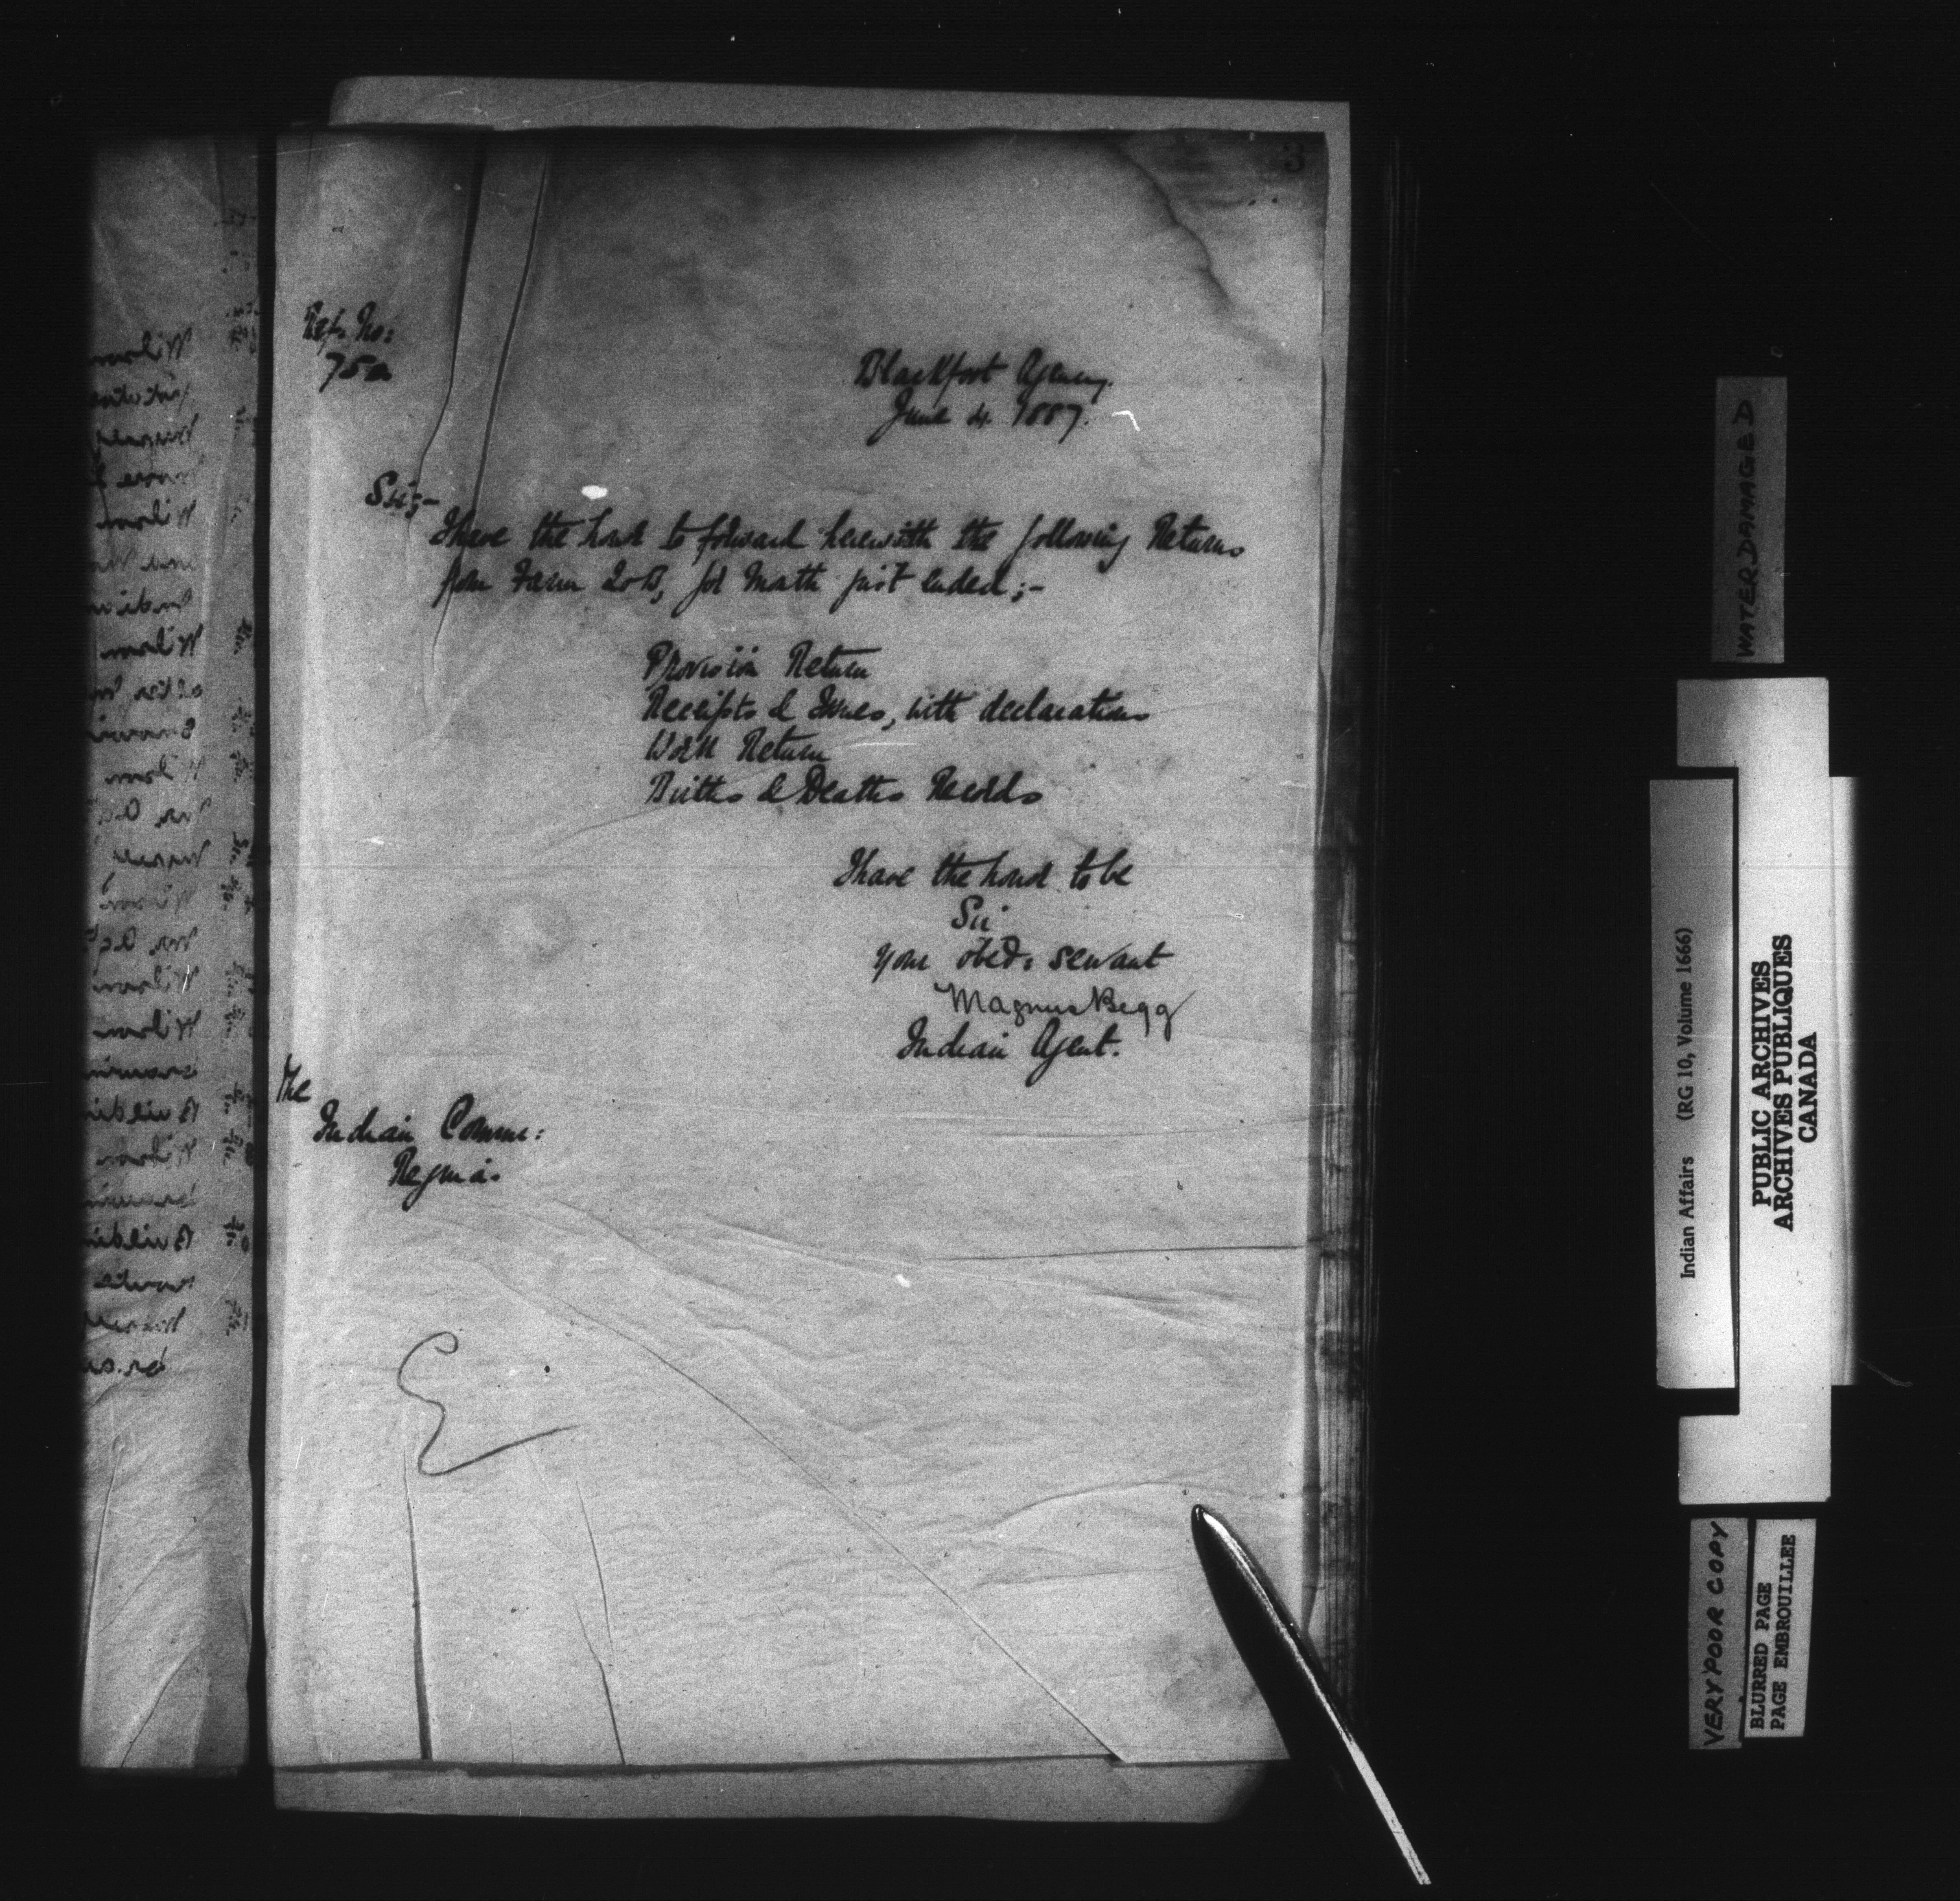 3
Ref. No:
75a
Blackfoot Agency.
June 4. 1887.
Sir;-
I have the honor to forward herewith the following Returns
from Farm 20B, for Month just ended;-
Provision Return
Receipts & Issues, with declarations
Work Return
Births & Deaths Records
I have the honor to be
Sir
Your obed: servant
Magnus Begg
Indian Agent.
The
Indian Comm:
Regina.
WATERDAMAGED
Indian Affairs (RG 10, Volume 1666)
PUBLIC ARCHIVES
ARCHIVES PUBLIQUES
CANADA
VERY POOR COPY
BLURRED PAGE
PAGE EMBROUILLEE